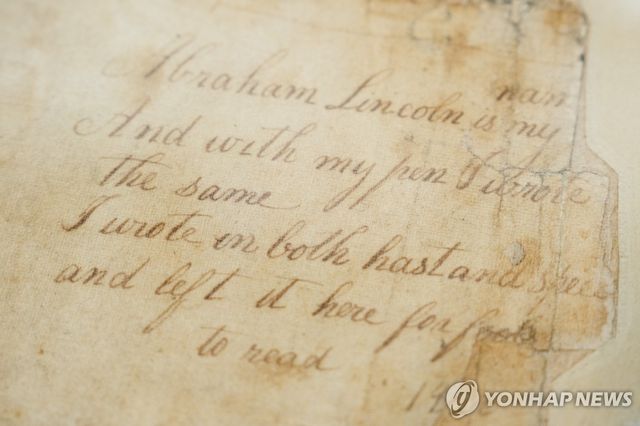 nam
Abraham Lincoln is my
And with my pen I wrote
the same
I wrote in both hast and spee
and left it here for fools
to read
YONHAP NEWS